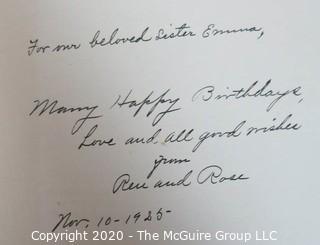 For our beloved Sister Emma,
Many Happy Birthdays,
Love and all good wishes
from
Reu and Rose
Nov. 10-1925-
Copyright © 2020 - The McGuire Group LLC